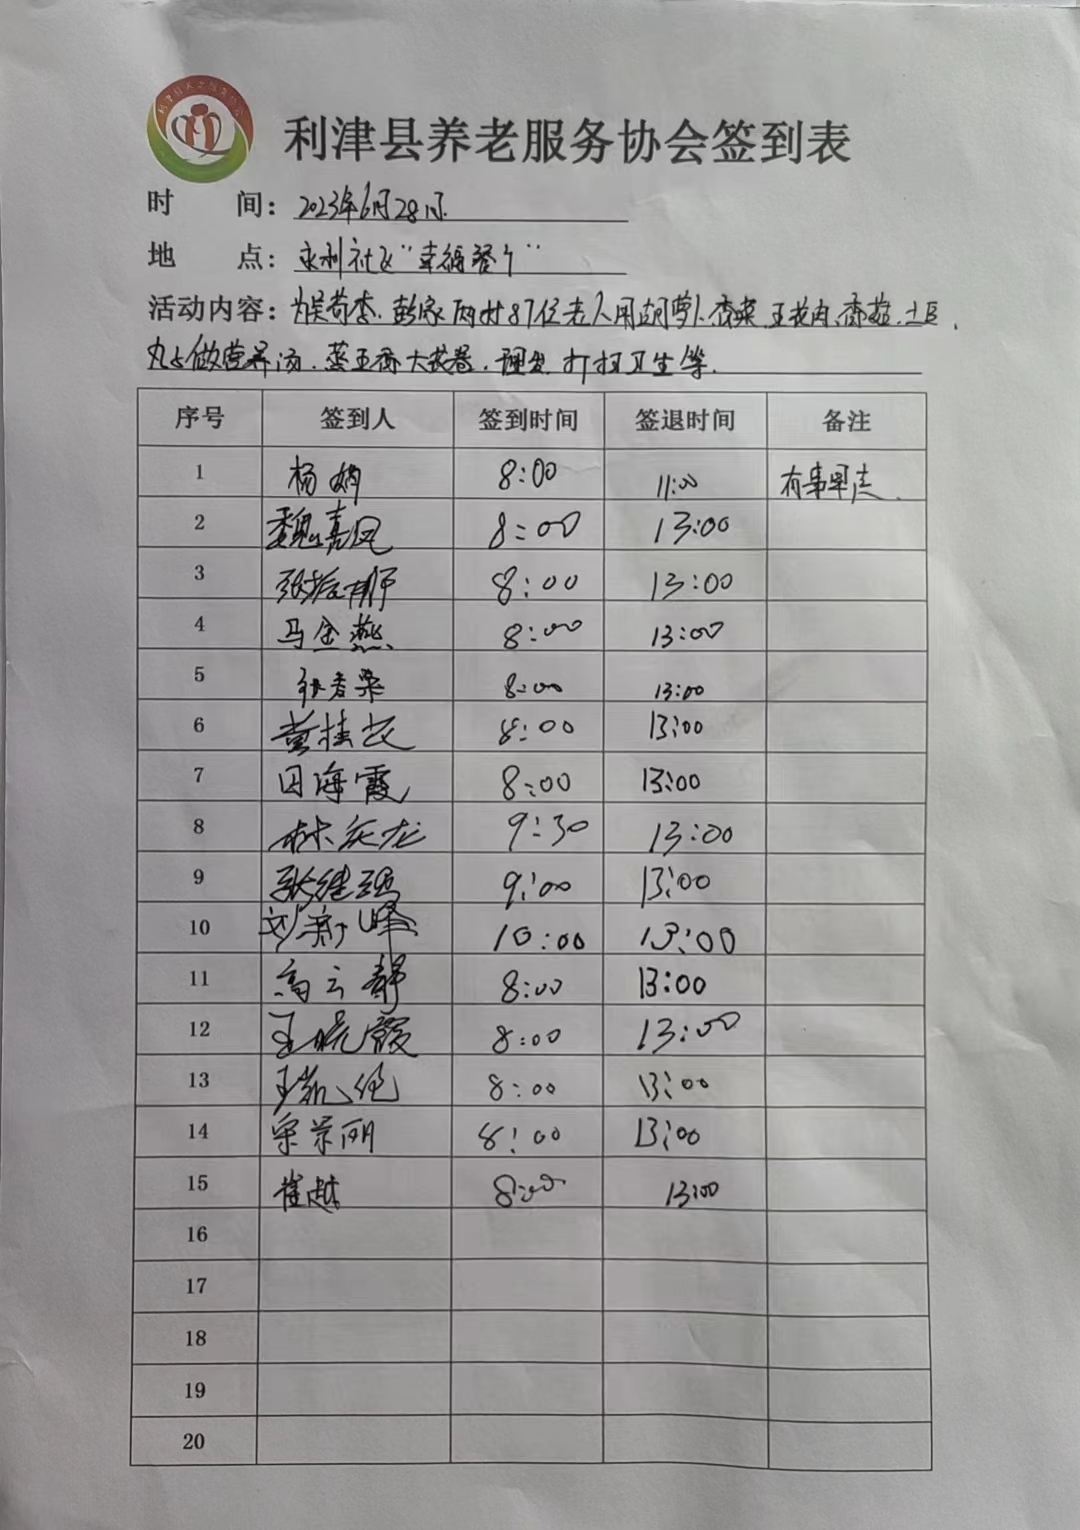 利津县养老服务协会签到表
时 间：2023年6月28日
地 点：永利社区“幸福餐厅”
活动内容：为 李、彭家两村87位老人用胡萝卜、香菜、五花肉、香菇、土豆、
丸子做营养汤、蒸五香大花卷、理发、打扫卫生等。
序号 签到人 签到时间 签退时间 备注
1 杨娟 8:00 11:00 有事早走.
2 魏嘉凤 8:00 13:00
3 张 8:00 13:00
4 马金燕 8:00 13:00
5 张香 8:00 13:00
6 黄桂 8:00 13:00
7 田海霞 8:00 13:00
8 林庆龙 9:30 13:00
9 张继强 9:00 13:00
10 刘新峰 10:00 13:00
11 高云静 8:00 13:00
12 王晓霞 8:00 13:00
13 王凯 8:00 13:00
14 宋景丽 8:00 13:00
15 崔越 8:00 13:00
16
17
18
19
20